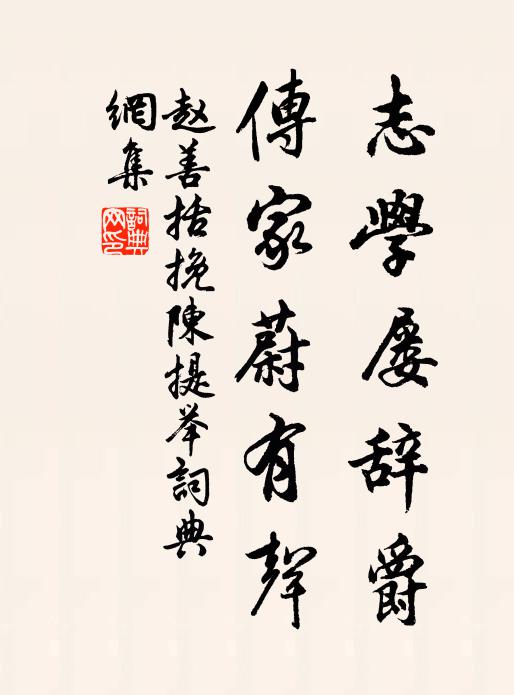 志學屡辞爵
傳家蔚有聲
赵善括挽陳提举詞典
網集
詞典網印